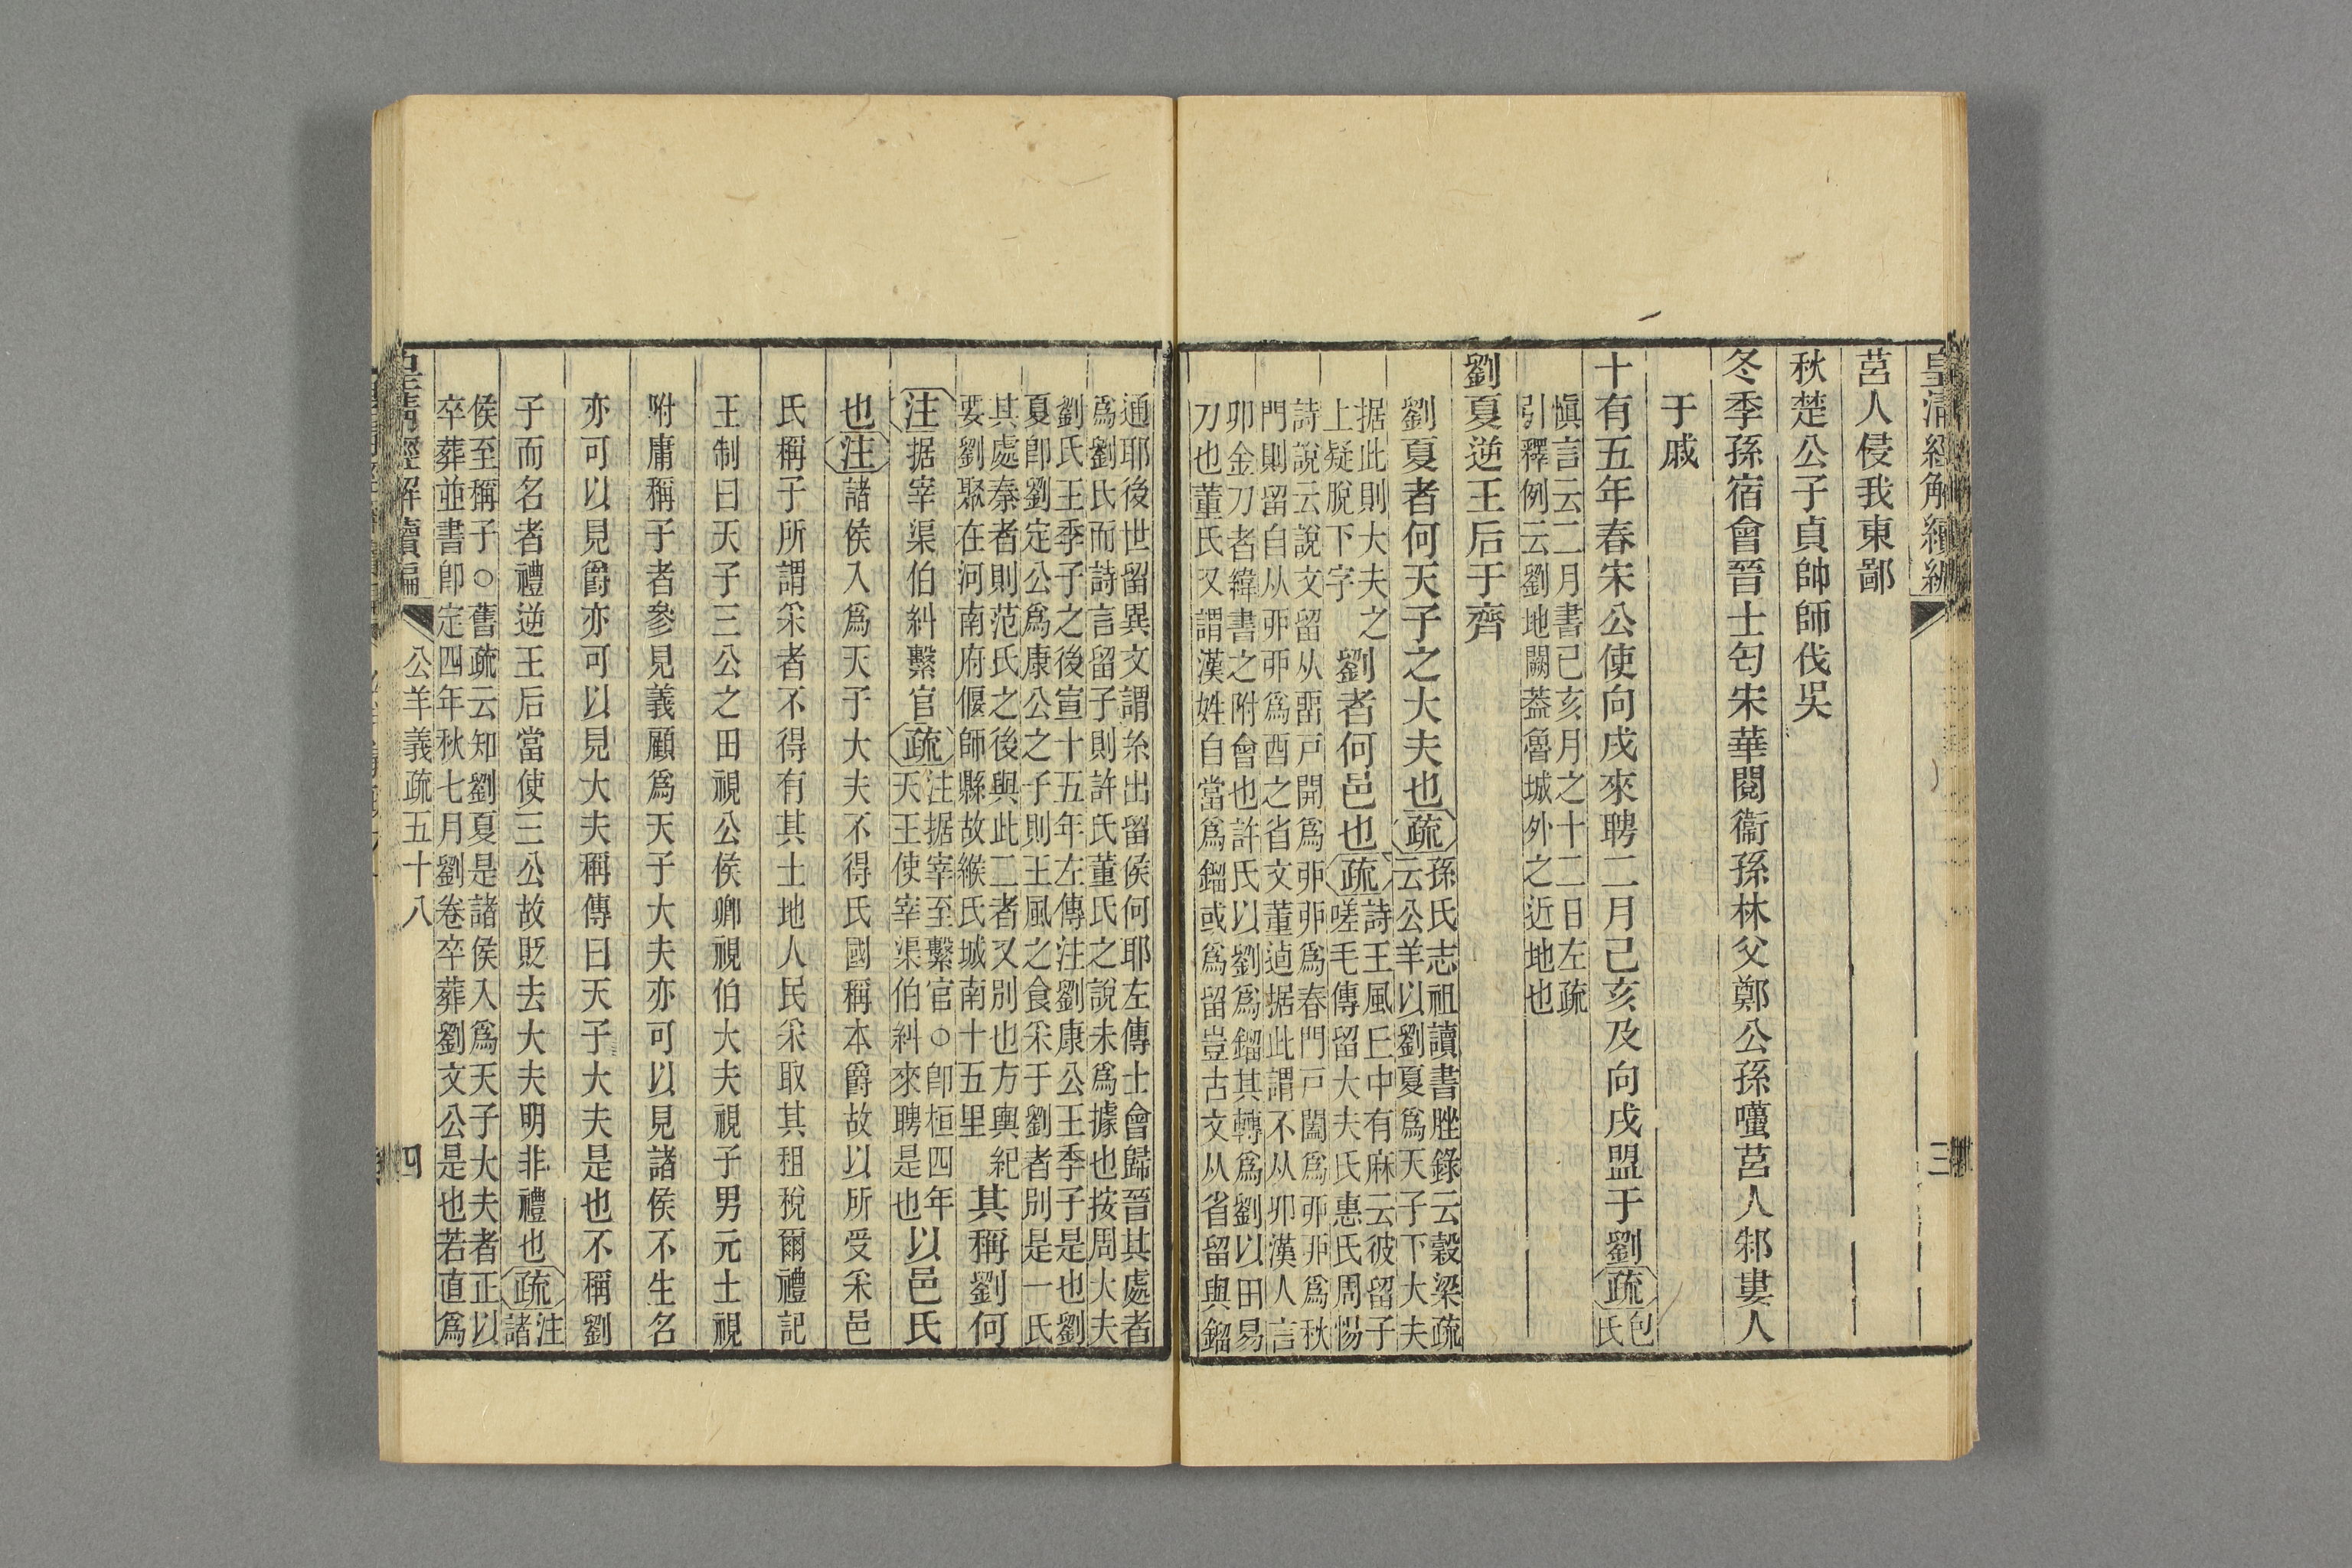 皇清經解續編
三
莒人侵我東鄙
秋楚公子貞帥師伐吳
冬季孫宿會晉士匄宋華閱衞孫林父鄭公孫囆莒人邾婁人
于戚
十有五年春宋公使向戌來聘二月己亥及向戌盟于劉疏包
氏
愼言云二月書己亥月之十二日左疏
引釋例云劉地闕葢魯城外之近地也
劉夏逆王后于齊
劉夏者何天子之大夫也疏孫氏志祖讀書脞錄云穀梁疏
云公羊以劉夏爲天子下大夫
据此則大夫之
上疑脫下字
劉者何邑也疏詩王風丘中有麻云彼留子
嗟毛傳留大夫氏惠氏周惕
詩說云說文留从丣戸開爲丣丣爲春門戸闔爲丣丣爲秋
門則留自从丣丣爲酉之省文董逌据此謂不从卯漢人言
卯金刀者緯書之附會也許氏以劉爲鎦其轉爲劉以田易
刀也董氏又謂漢姓自當爲鎦或爲留豈古文从省留與鎦
通耶後世留異文謂糸出留侯何耶左傳士會歸晉其處者
爲劉氏而詩言留子則許氏董氏之說未爲據也按周大夫
劉氏王季子之後宣十五年左傳注劉康公王季子是也劉
夏卽劉定公爲康公之子則王風之食采于劉者別是一氏
其處秦者則范氏之後與此二者又別也方輿紀
要劉聚在河南府偃師縣故緱氏城南十五里
其稱劉何
注据宰渠伯糾繫官疏注据宰至繫官○卽桓四年
天王使宰渠伯糾來聘是也
以邑氏
也注諸侯入爲天子大夫不得氏國稱本爵故以所受采邑
氏稱子所謂采者不得有其土地人民采取其租稅爾禮記
王制曰天子三公之田視公侯卿視伯大夫視子男元士視
附庸稱子者參見義顧爲天子大夫亦可以見諸侯不生名
亦可以見爵亦可以見大夫稱傳曰天子大夫是也不稱劉
子而名者禮逆王后當使三公故貶去大夫明非禮也疏注
諸
侯至稱子○舊疏云知劉夏是諸侯入爲天子大夫者正以
卒葬並書卽定四年秋七月劉卷卒葬劉文公是也若直爲
皇清經解續編
公羊義疏五十八
四